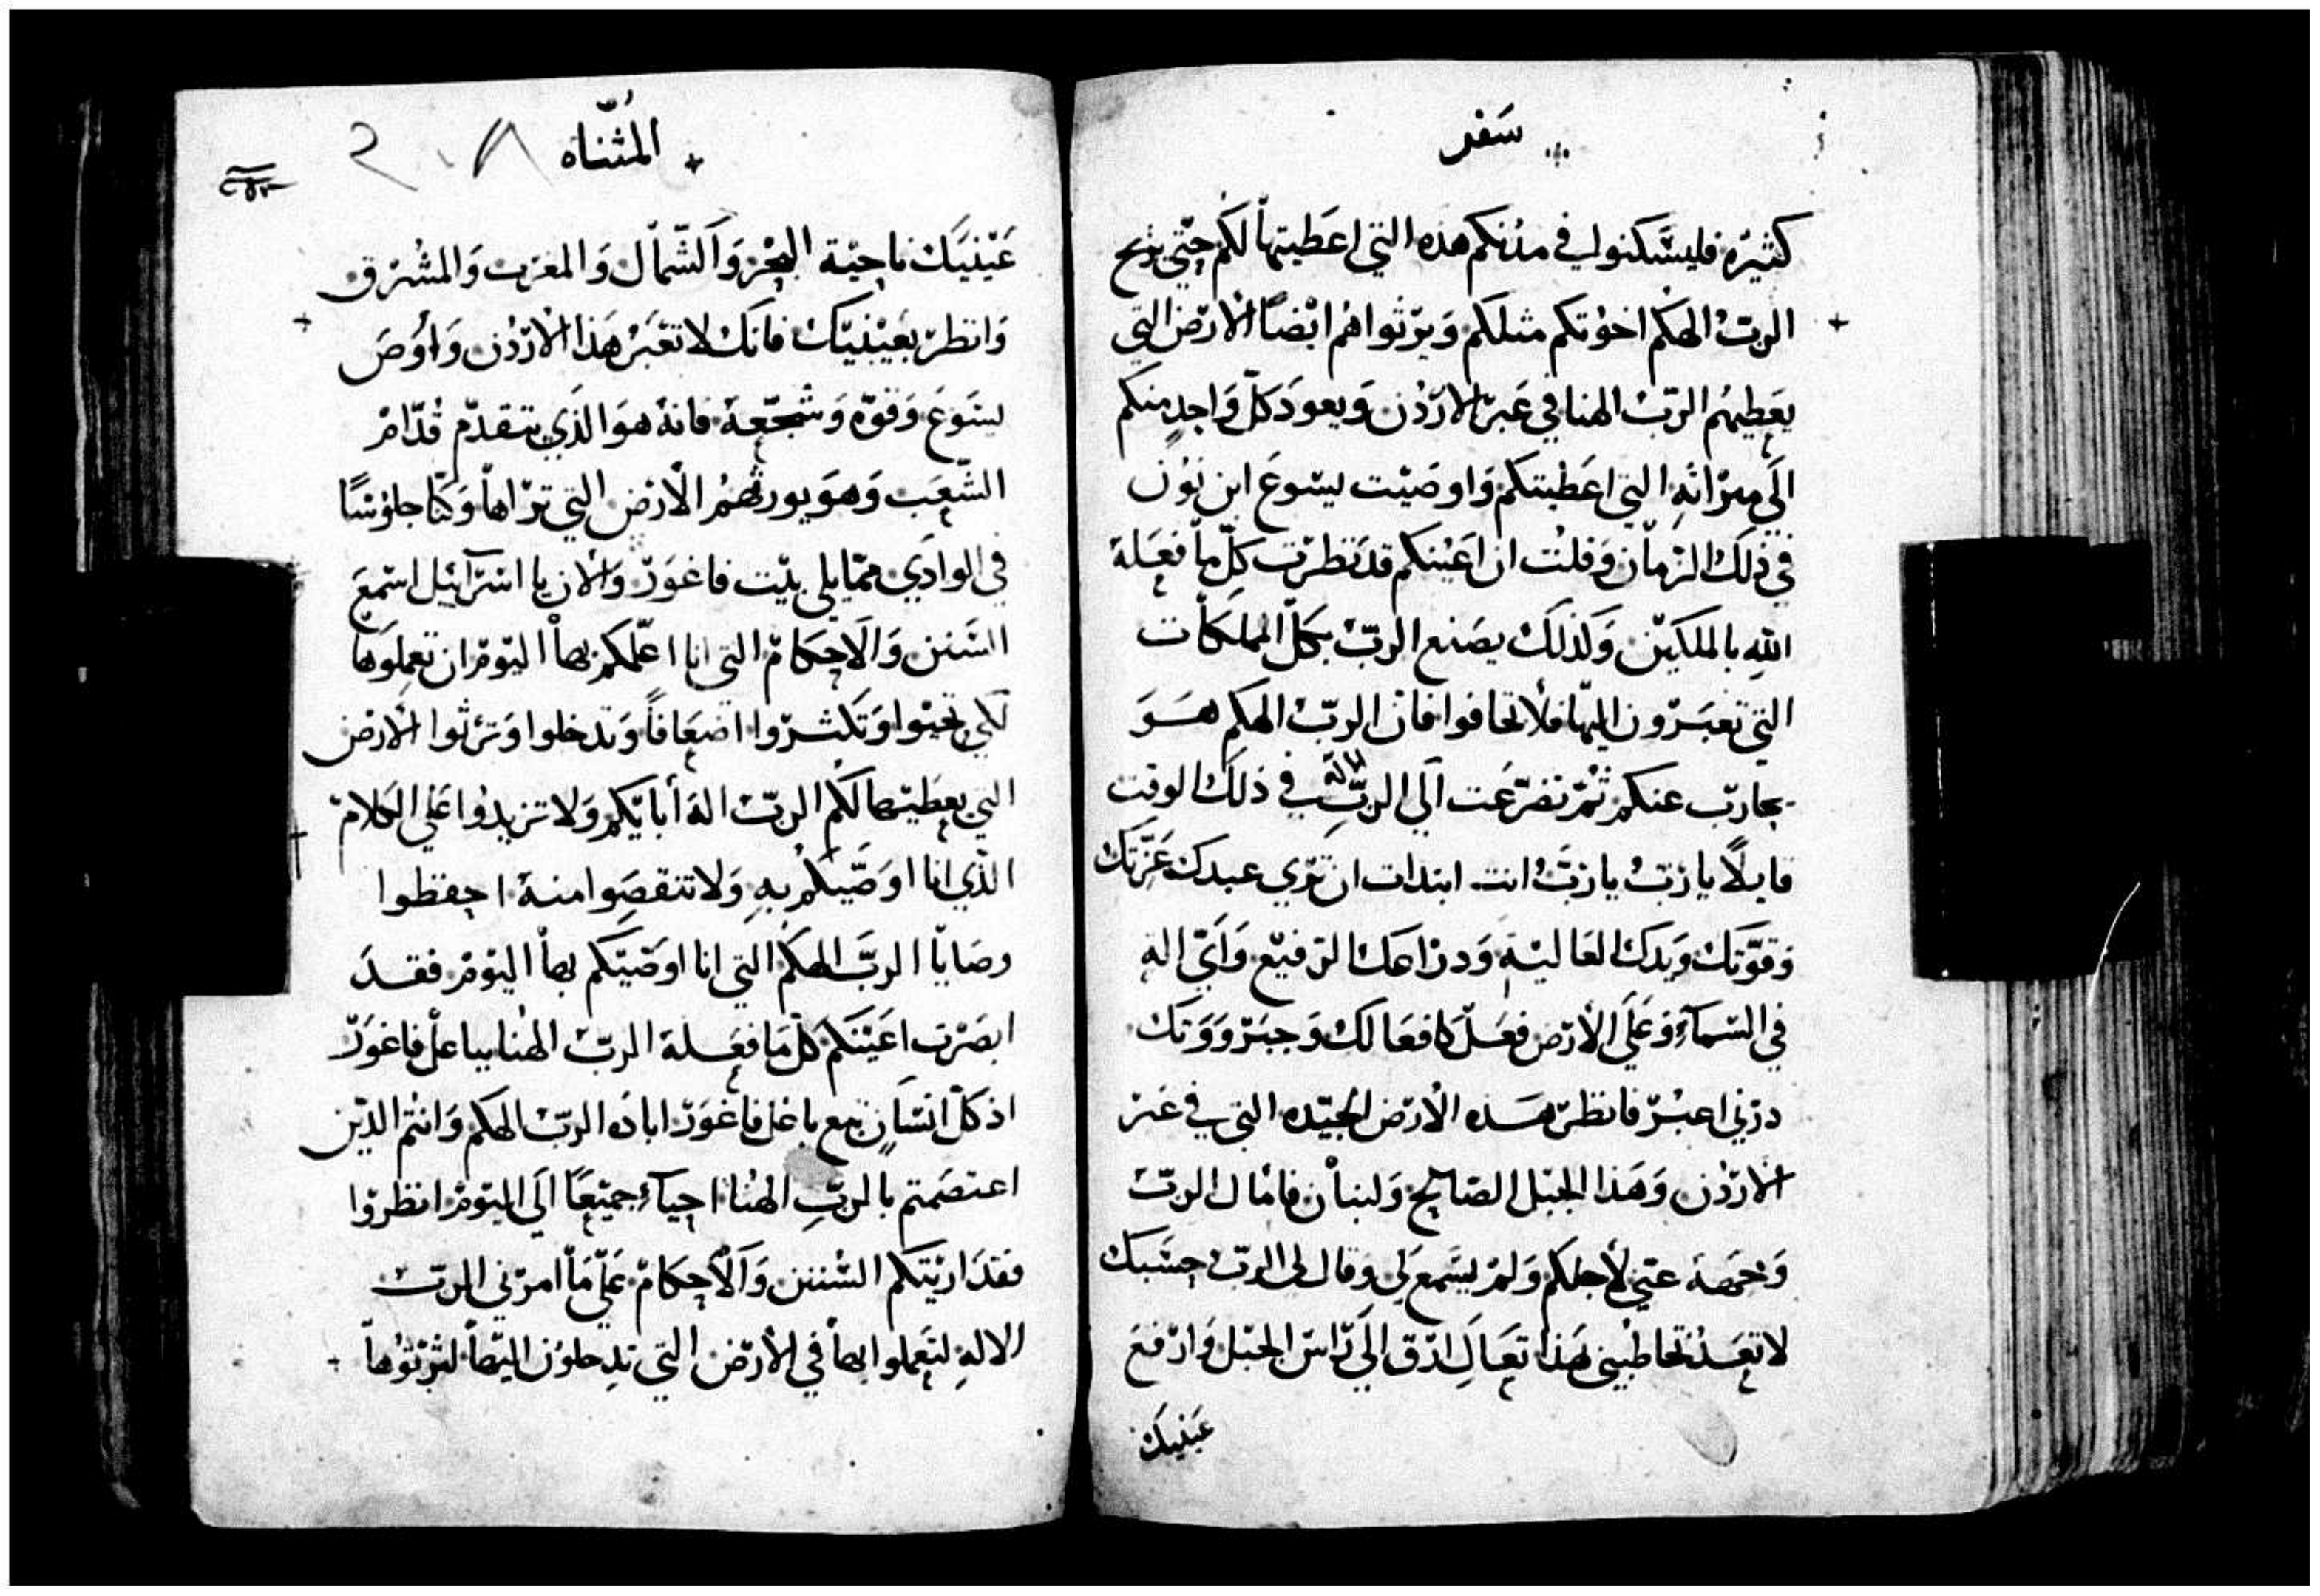 سَفر
كثيرة فليسَّكنوا في مدنكم هذه التي اعَطيتهاْ لكَم حتّي يرُيح
الربّ الهَكم اخوُتكم مثلكم وَيرّثوا هُم ايْضاً الْارّض التي
يعَطيهُم الربّ الهنا في عَبر الارّدُن وَيعودَ كلّ وَاحدٍ منكم
الَي ميرْاثهِ التي اعَطيتكم وَاوصَيْت يسّوعَ ابن نوُن
في ذلَكَ الزّماْن وَقلتْ ان اعَينكم قد نَظرْت كلّ ماْ فعَلهَ
اللهِ بالملكَين وَلذلَكَ يصَنع الربّ بكلّ المملكاَت
التي تعبَرّون اليهْا فلاْ تخافوا فان الربّ الهكم هَوَ
يحاربّ عنكم ثمّ تضرّعَت اَلي الربّ الاله في ذلكَ الوقت
قايلاً يا ربُّ يا ربُّ انت ابتدات ان ترّي عبدكَ عَزّتكَ
وَقوّتكَ وَيدكَ العَاليَة وَدرْاعكَ الرّفيْع وَايّ الهٍ
في السّماَءِ وَعَلَي الاْرّض فعَلّ كافعَالكَ وَجبَرّووَتكَ
درّني اعبُرّ فانظرّ هَذه الْارّض الجيّده التي في عَبرْ
الارّدُن وَهَذا الجبّل الصّالح وَلبناْن فامْال الربّ
وَجهَهَ عنّي لأجلكَم وَلمّ يسَّمع لي وَقال لي الربّ حسّبكَ
لا تعَد تخاطبْني هَذا تعَالَ ارّقِ الَي رّاسّ الجبّل وَارْفعَ
عَينيكَ
المُثنّاه
٢٠٨
عَيْنيَكَ ناحيْة البحْر وَاَلشّماْل وَالمغرّب وَالمشُرْق
وَانظرّ بعَيْنيّكَ فانكَ لا تعْبَرْ هَذا الْارّدُن وَاوُصَ
يسَوعَ وَقوّه وَشجّعهَ فانهُ هوَ الذَي يتقدّم قُدّامْ
الشّعَب وَهوَ يورثهُمُ الْارْض التي ترْاهاْ وَكنّا جلوُسًا
في الوادَي ممّا يلي بيْت فاغوَرّ وَالْان يا اسْرّائيل اسَمعَ
السَنن وَالَاحكَامّ التي انا اعَلّمكم بهاْ اليوْمّ ان تعمِلوَها
لكَي تحيْوا وَتكثرّوا اضعَافاً وَتدخلوا وَترْثوا الْارْض
التي يعَطيَها لكَم الربّ الهَ أبايّكم وَلا تزيدوُا عَلي الكلامّ
الذّي انا اوَصّيكُم بهِ وَلا تنقصَوا منهُ احفظوا
وصَاياْ الربَّ الهكَم التي انا اوَصّيكم بهاْ اليوْمّ فقدَ
ابصَرْت اعَيْنكَم كلّ مَا فعَلهَ الربّ الهُنا بباعلْ فاغوَرّ
اذ كلّ انسَانٍ تبع باعل فاغوَرّ ابادَه الربّ الهكم وَانتْم الذيّن
اعتصَمتم باْلربِّ الهُنا احياَءٍ جميَعاً الَي اليوْمّ انظرّوا
فقدَ ارَيْتكَم السّنن وَالْاحكَامّ عَلّي مَا امرْني الربّ
الالهِ لتعَملوا بهاْ في الأرّض التي تدِخلوُن اليهاْ لترّثوُهاْ